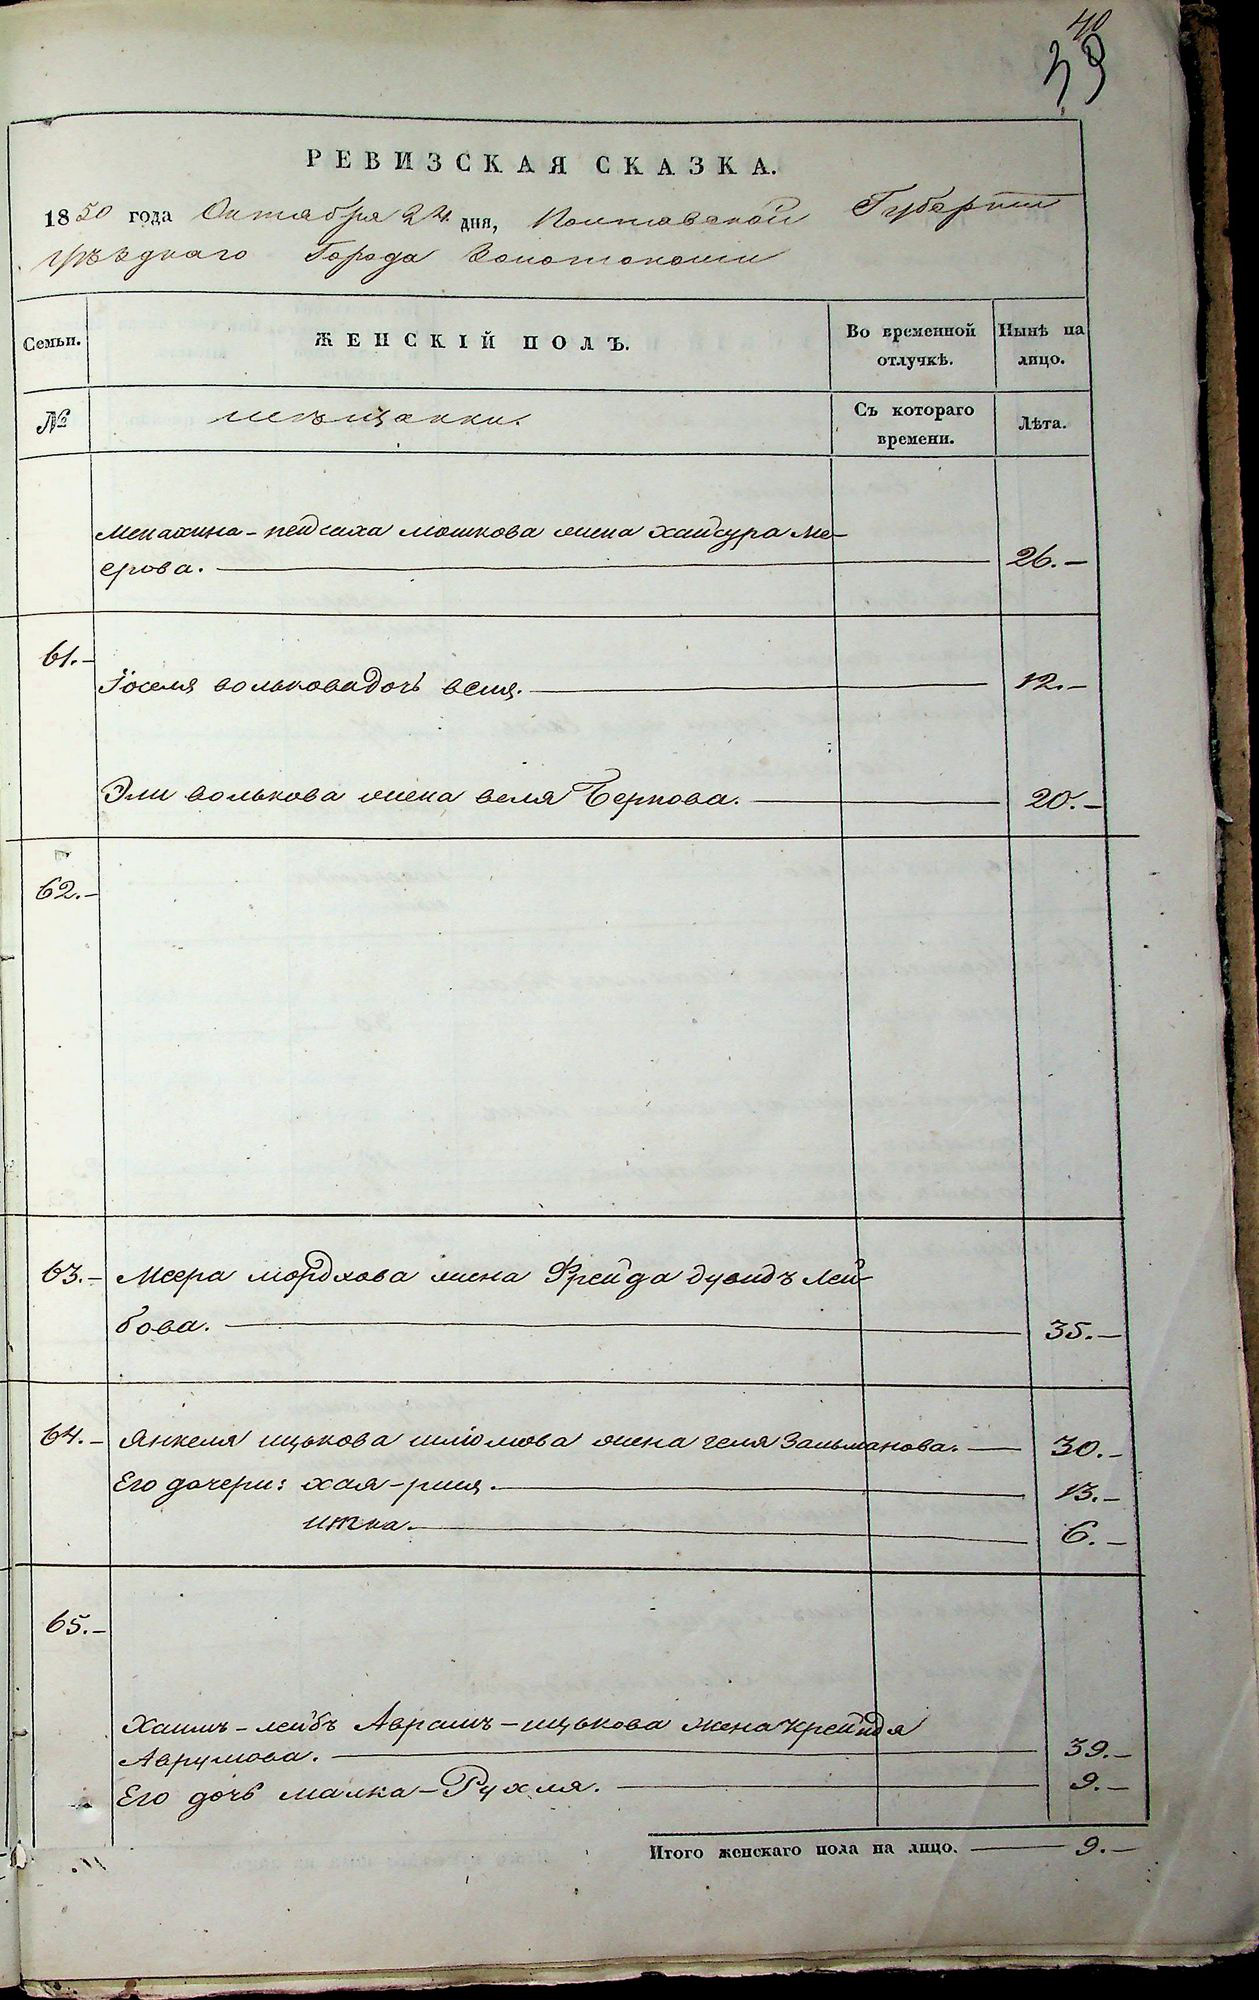 40
39
РЕВИЗСКАЯ СКАЗКА.
1850 года Октября 24 дня, Полтавской Губернии
уѣзднаго Города Золотоноши
Семьи. ЖЕНСКІЙ ПОЛЪ. Во временной отлучкѣ. Нынѣ на лицо.
№ мѣщанки. Съ котораго времени. Лѣта.
Менахина-пейсаха мошкова жена хайсура ме-
ерова. 26.-
61.-
Іоселя волькова дочь вешя. 12.-
Эли волькова жена веля Беркова. 20.-
62.-
63.- Меера мордхова жена Фрейда дувидъ лей-
бова. 35.-
64.- Янкеля ицькова шліомова жена геля Зальманова. 30.-
Его дочери: хая-рися. 13.-
итка. 6.-
65.-
Хаимъ-лейбъ Аврамъ-ицькова жена Крейндя
Аврумова. 39.-
Его дочь малка-Рухля. 9.-
Итого женскаго пола на лицо. 9.-